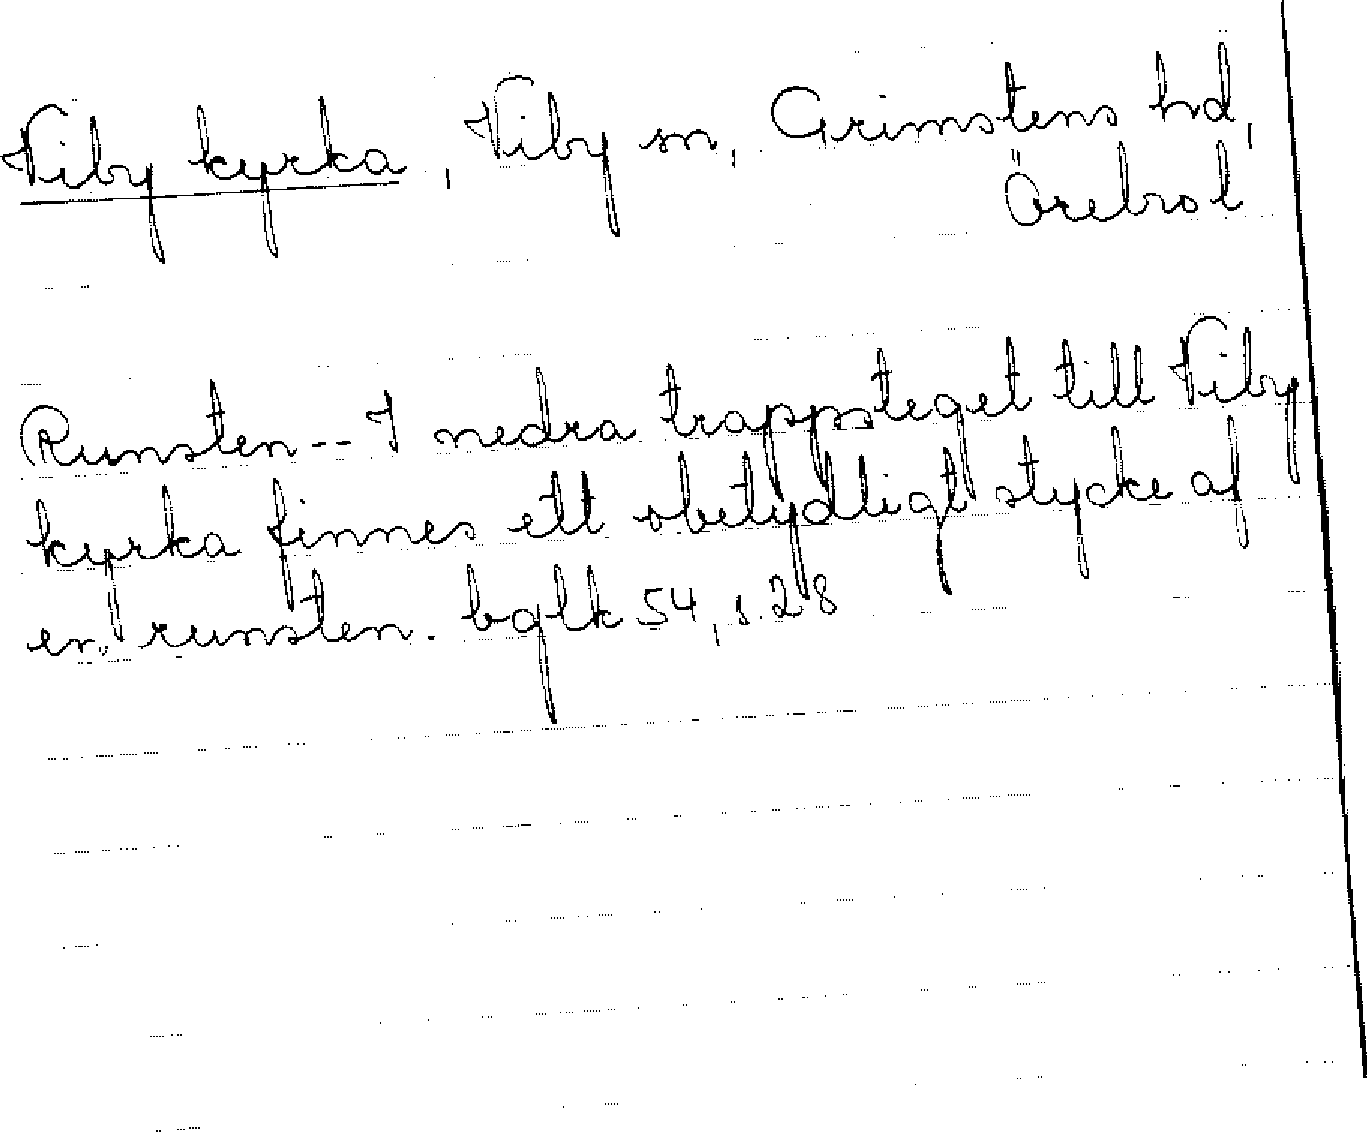 Viby kyrka, Viby sn, Grimstens hd,
Örebro l
Runsten -- I nedra trappsteget till Viby
kyrka finnes ett obetydligt stycke af
en runsten. bglk 54, s. 28